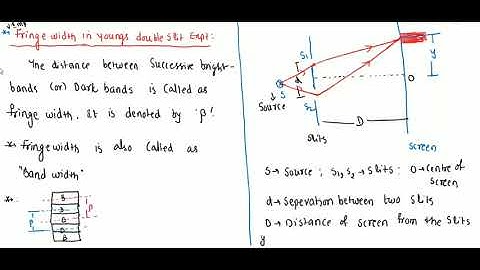 * Fringe width in youngs double slit Expt:
The distance between Successive bright-
bands (or) Dark bands is Called as
fringe width. It is denoted by 'β'.
* Fringe width is also Called as
"Band width"
*
B
D
B
D
B
β
β
S1
S
d
S2
Source
Slits
D
O
y
screen
S → Source ; S1, S2 → Slits : O → Centre of
screen
d → Seperation between two Slits
D → Distance of screen from the Slits
y